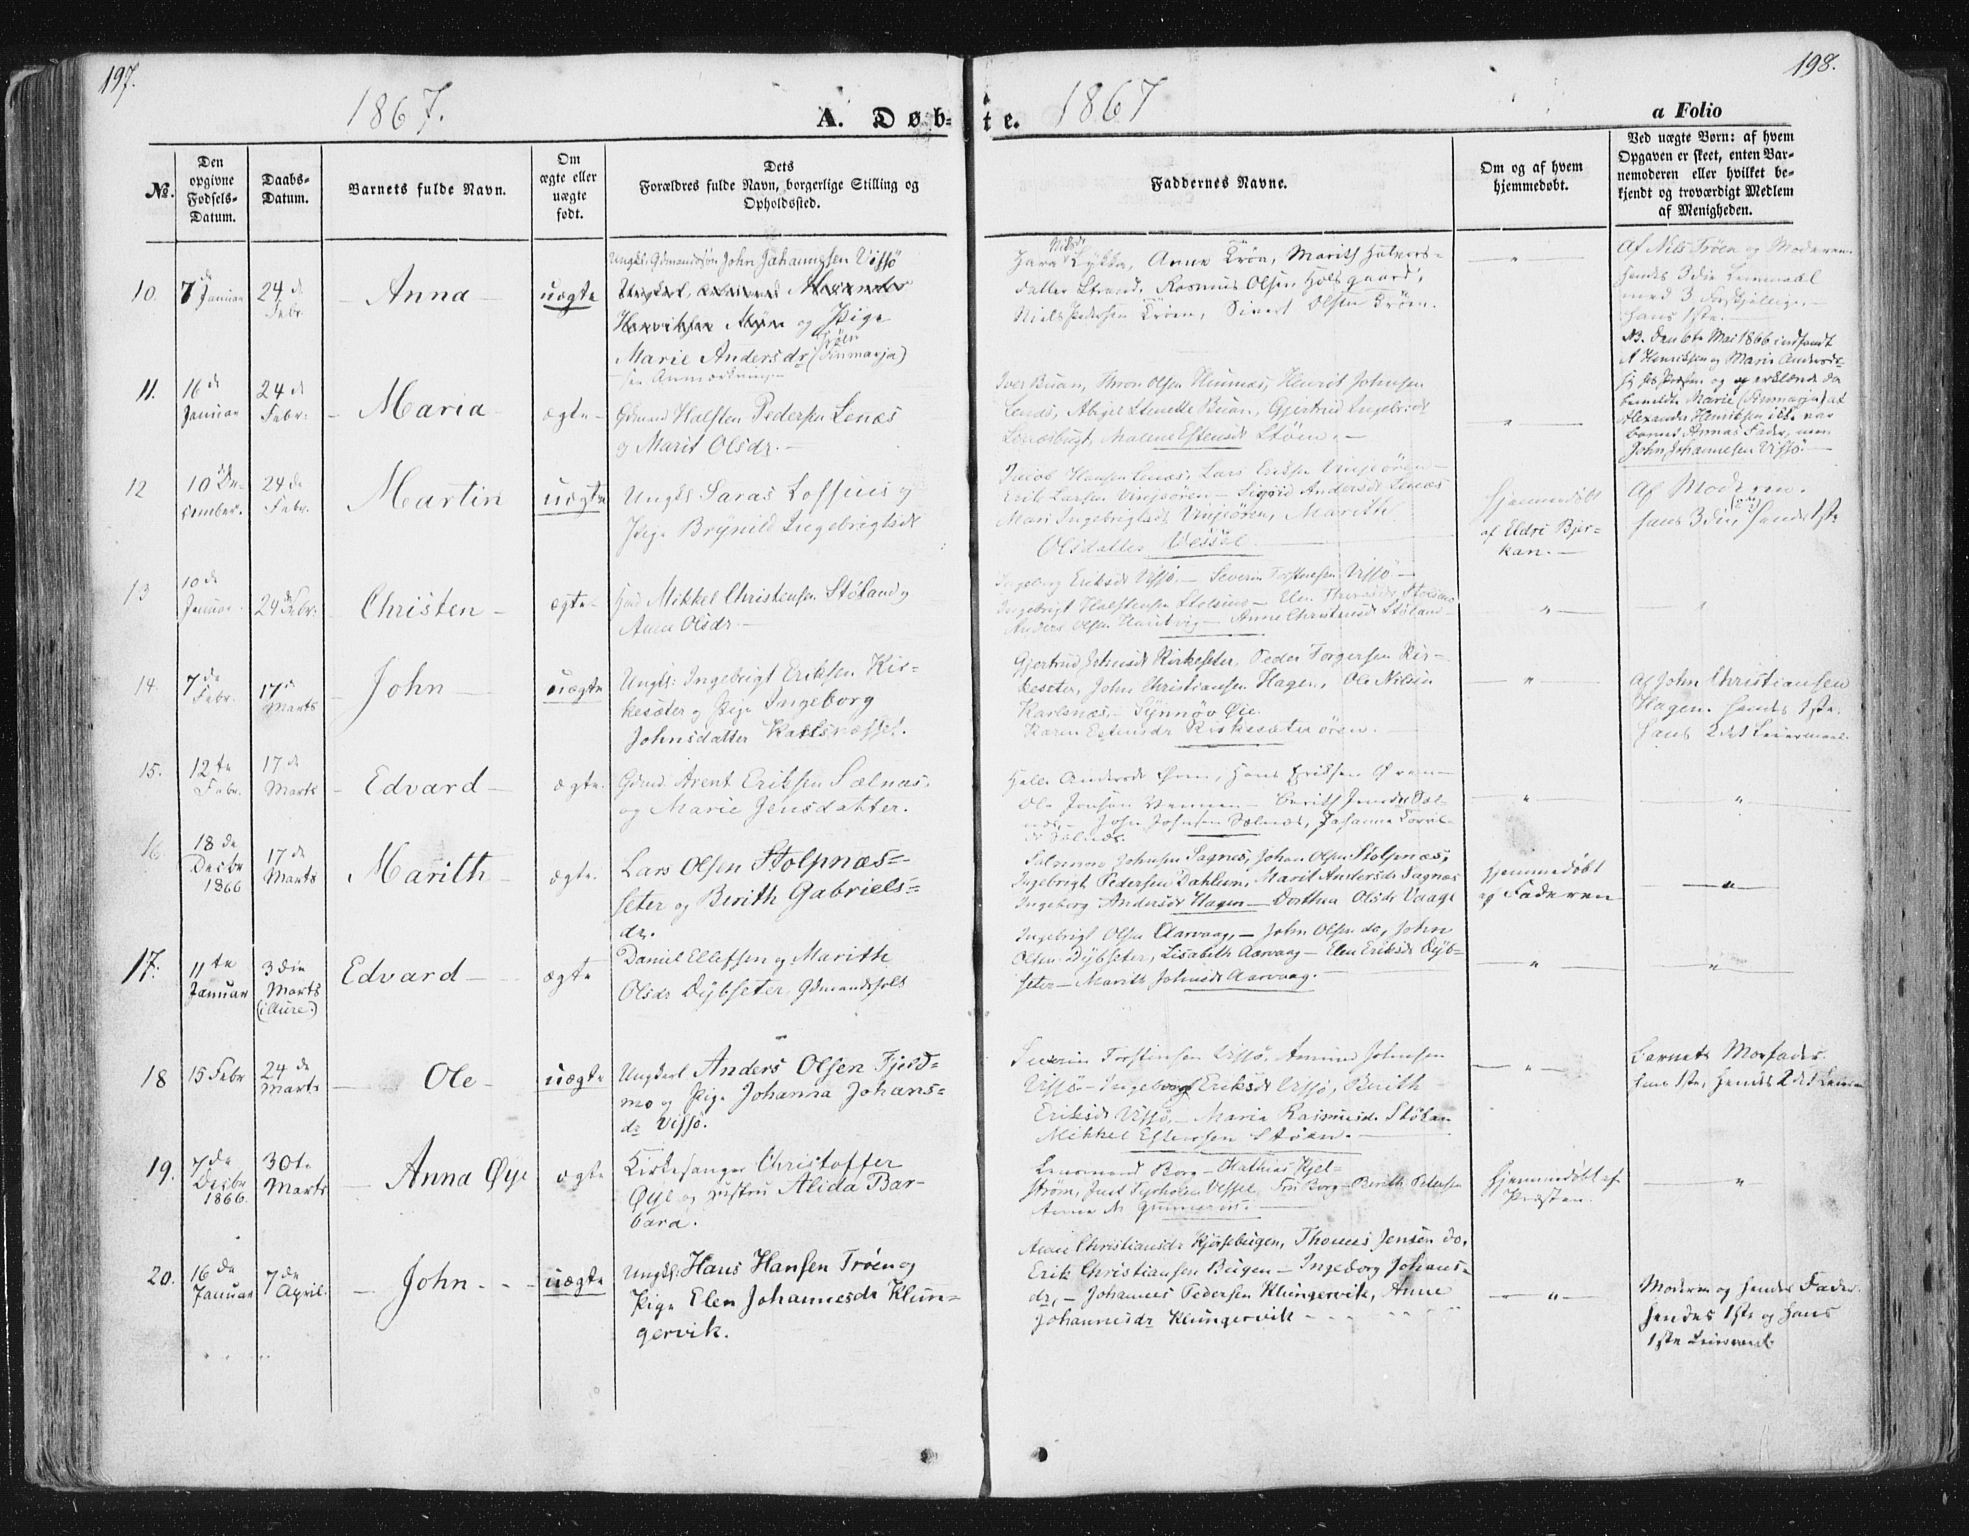 197.
198.
1867.
A. Døb-
te.
1867
a Folio
No.
Den opgivne Fødsels-Datum.
Daabs-Datum.
Barnets fulde Navn.
Om ægte eller uægte født.
Dets
Forældres fulde Navn, borgerlige Stilling og
Opholdssted.
Faddernes Navne.
Om og af hvem
hjemmedøbt.
Ved uægte Børn: af hvem
Opgaven er skeet, enten Bar-
nemoderen eller hvilket be-
kjendt og troværdigt Medlem
af Menigheden.
10. 7de Januar 24de Febr. Anna uægte
Ungkl. Gdmandssøn John Johannesen Vissø
og Pige
Marie Andersdr Trøen (Finmarja)
se Anmærkning
Anne Trøa, Marith Halvors-
datter Strand, Rasmus Olsen Holsgaard,
Niels Pedersen Trøen, Sivert Olsen Trøen.
Af Nils Trøen og Moderen.
hendes 3die Leiermaal
med 3 Forskjellige,
hans 1ste.
NB. Den 6te Mai 1866 indfandt
A Henriksen og Marie Andersdr
sig hos Præsten og erklærede da
bemeldte Marie (Finmarja) at
Alexander Henriksen ikke var
Barnet Annas Fader, men
John Johannesen Vissø.
11. 16de Januar 24de Febr. Maria ægte
Gdmd Halsten Pedersen Lenæs
og Marit Olsdr.
Iver Buan, Thron Olsen Hennæs, Henrik Johnsen
Lenæs, Abigel Stenette Buan, Gjertrud Ingebrigtsdr
Lenæsbugt, Malene Estensdr Støen.
12 10 De-
cember. 24de Febr. Martin uægte
Ungkl. Saras Loffuus og
Pige Brynild Ingebrigtsdr
Jacob Hansen Lenæs, Lars Eriksen Vinjeøren
Erik Larsen Vinjeøren - Sigrid Andersdr Lenæs
Mari Ingebrigtsdr Vinjeøren, Marith
Olsdatter Wessel
Hjemmedøbt
af Eldri Bjer-
kan.
Af Moderen.
hans 3die, hendes 1ste
13 10de Januar 24de Febr. Christen ægte
Gmd Mikkel Christensen Støland og
Anne Olsdr
Ingeborg Eriksdr Vissø - Severin Torstensen Vissø
Ingebrigt Halstensen Stolsnæs - Elen Thoresdr Stolsnæs
Anders Olsen Hauitvig - Anne Christensdr Støland
14. 7de Febr. 17de Marts John uægte
Ungkl. Ingebrigt Eriksen Kir-
kesæter og Pige Ingeborg
Johnsdatter Karlsnæsset.
Gjertrud Johnsdr Kirkeseter, Peder Torgersen Kir-
keseter, John Christiansen Hagen, Ole Nilsen
Karlsnæs, Synnøv Øie.
Karen Estensdr Kirkesæterøren.
af John Christiansen
Hagen. hendes 1ste.
hans 2det Leiermaal.
15. 12te Febr. 17de Marts Edvard ægte.
Gdmd. Arent Eriksen Sælnæs.
og Marie Jensdatter.
Helle Andersdr Øren, Hans Eriksen Øren
Ole Jonsen Vennen - Berith Jensdr Sæl-
næs - John Johnsen Sælnæs, Johanna
Sælnæs.
16 18de Decbr 1866 17de Marts Marith ægte.
Lars Olsen Stolpnæs=
seter og Berith Gabriels=
dr.
Salomon Johnsen Sagnes, Johan Olsen Stolpnæs,
Ingebrigt Pedersen Dahlum, Marit Andersdr Sagnæs
Ingeborg Andersdr Hagen - Dorthea Olsdr Vaage
Hjemmedøbt
af Faderen
17. 11te Januar 3die Marts (i Aure.) Edvard ægte
Daniel Ellefsen og Marith
Olsdr Dybseter, Gdmandsfolk
Ingebrigt Olsen Aarvaag, - John Olsen do, John
Olsen Dybseter, Lisabeth Aarvaag - Elen Eriksdr Dyb-
seter - Marith Johnsdr Aarvaag.
18 15 Febr 24de Marts Ole uægte
Ungkarl Anders Olsen Fjeld=
mo og Pige Johanna Johans=
dr Vissø.
Severin Torstensen Vissø, Amund Johnsen
Vissø - Ingeborg Eriksdr Vissø, Berith
Eriksdr Vissø, - Maria Rasmusdr Støland
Mikkel Estensen Støen.
Barnets Morfader.
hans 1ste, hendes 2det Leierm
19. 7de Decbr 1866. 30te Marts Anna Øye ægte
Kirkesanger Christoffer
Øye og Hustru Alida Bar-
bara.
Lensmand Borg - Mathias Kjel-
strøm, Just Tyrholm Vessel, Fru Borg - Berith Petersen
Anna M Gunnerus.
Hjemmedøbt af
Præsten.
20. 16de Januar 7de April. John uægte
Ungkl. Hans Hansen Trøen og
Pige Elen Johannesdr Klun-
gervik.
Anne Christiansdr Kjørsebugen, Thomas Jensen do,
Erik Christiansen Bugen - Ingeborg Johans-
dr, - Johannes Pedersen Klungervik, Anne
Johannesdr Klungervik
Moderen og hendes Fader.
hendes 1ste og hans
1ste Leiermaal.